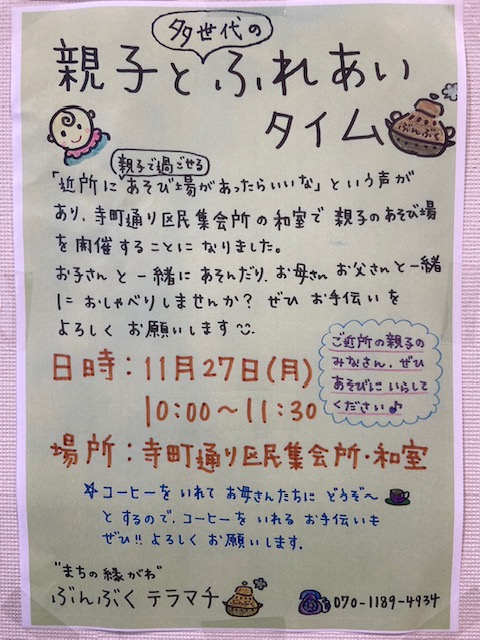 多世代の
親子とふれあい
タイム
ぶんぶく
親子で過ごせる
「近所にあそび場があったらいいな」という声が
あり、寺町通り区民集会所の和室で親子のあそび場
を開催することになりました。
お子さんと一緒にあそんだり、お母さんお父さんと一緒
におしゃべりしませんか? ぜひお手伝いを
よろしくお願いします
ご近所の親子の
みなさん、ぜひ
あそびにいらして
ください♪
日時:11月27日(月)
10:00〜11:30
場所:寺町通り区民集会所・和室
☆コーヒーをいれてお母さんたちにどうぞ〜
とするので、コーヒーをいれるお手伝いも
ぜひ!!よろしくお願いします。
"まちの縁がわ"
ぶんぶくテラマチ
070-1189-4934